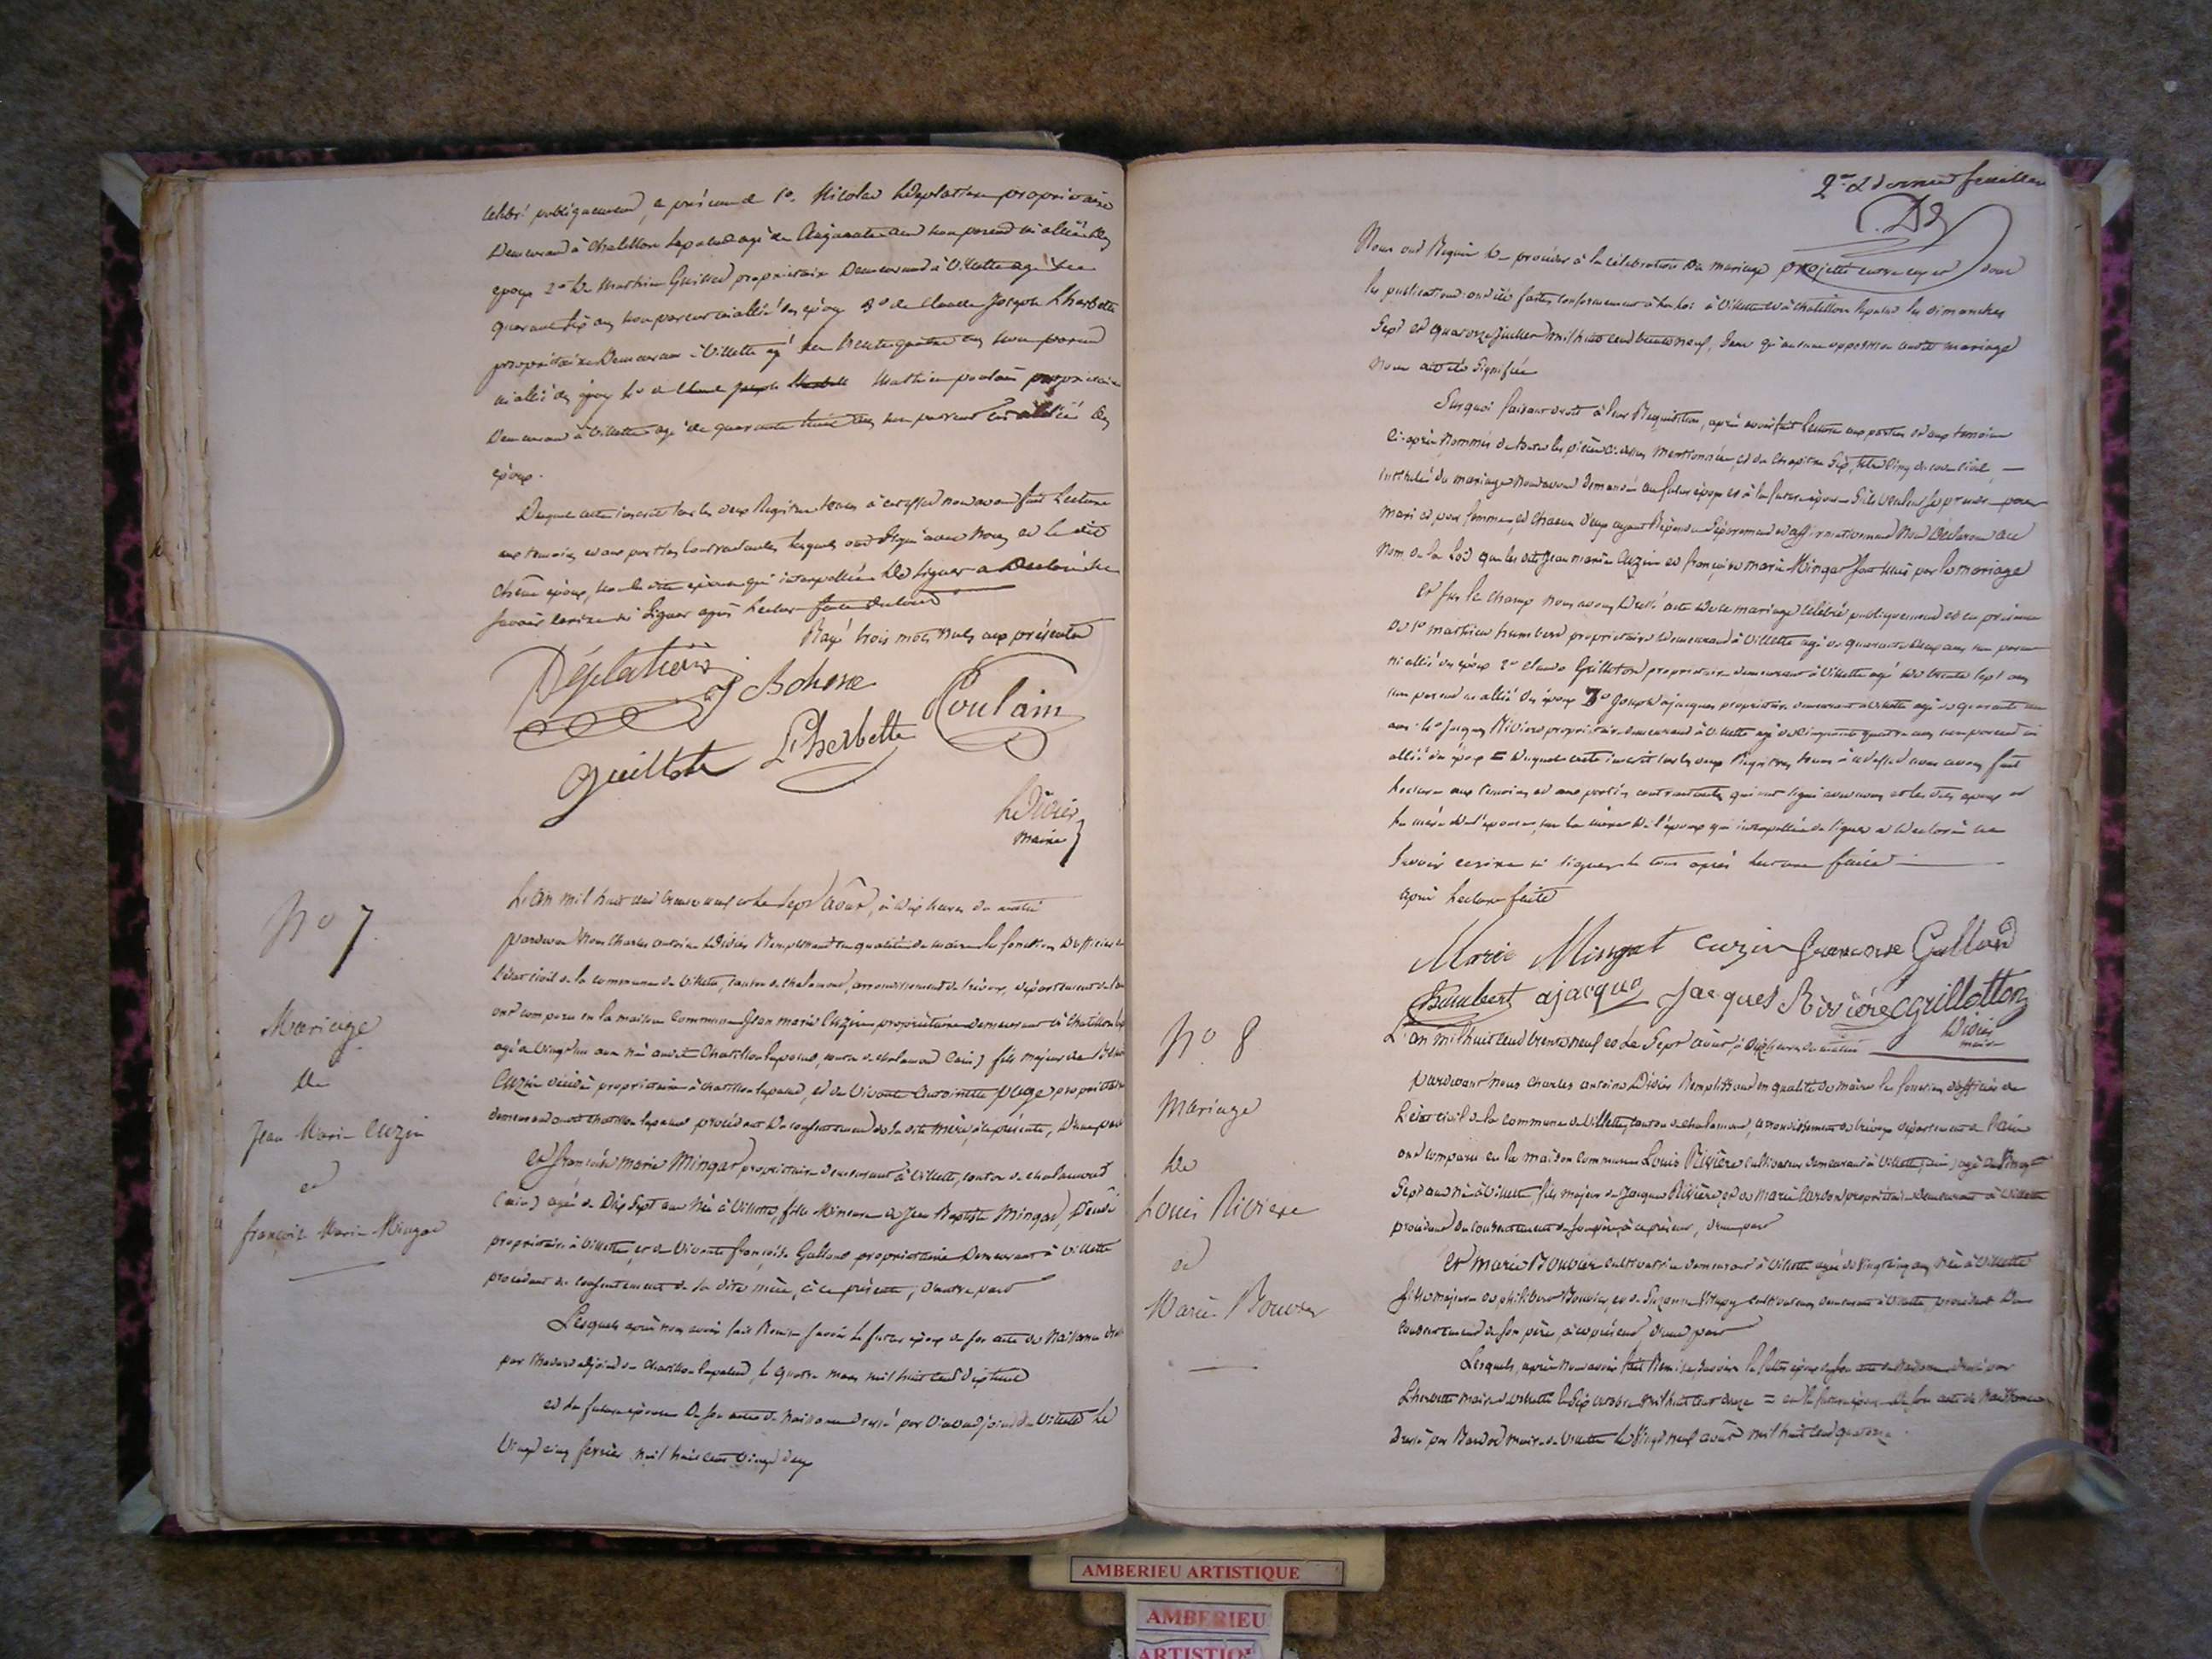 célébré publiquement, en présence de 1º. Nicolas Déplatière propriétaire
Demeurant à Chatillon lapalud agé de Cinquante ans non parent ni allié des
époux 2º de Mathieu propriétaire Demeurant à Villette agé de
quarante six ans non parent ni allié des époux 3º de Claude Joseph Lherbette
propriétaire Demeurant à Villette agé de trente quatre ans non parent
ni allié des époux 4º de Claude Joseph Mathieu poulain propriétaire
Demeurant à Villette agé de quarante ans non parent ni allié des
époux.
Duquel acte inscrit sur les deux Registres tenus à cet effet nous avons fait Lecture
aux temoins et aux parties contractantes lesquels ont Signé avec Nous et le dit
époux, non la dite épouse qui interpellée de signer a Déclaré ne
savoir écrire ni Signer après lecture faite
Rayé trois mots nuls aux présentes
Déplatière Bohene Poulain
guillot Lherbette
Didier
maire
Nº 7
Mariage
De
Jean Marie Cuzin
et
françoise Marie Mingat
L'an mil huit cent trente neuf et le sept août, à dix heures du matin
pardevant Nous Charles antoine Didier Remplissant en qualité de maire les fonctions D'officier de
l'état civil de la commune de Villette, canton de chalamont, arrondissement de trévoux, département de l'ain
ont comparu en la maison Commune Jean marie Cuzin propriétaire demeurant à Chatillon lap
agé de vingt ans né audit Chatillon lapalud, canton de chalamont (ain) fils majeur de
Cuzin décédé propriétaire à chatillon lapalud, et de Vivante Antoinette page propriétaire
demeurant audit chatillon lapalud procédant Du consentement de sa dite mère, à ce présente, D'une part
Et françoise marie Mingat propriétaire demeurant à Villette, canton de chalamont
(ain) agée de Dix Sept ans née à Villette, fille Mineure de Jean Baptiste Mingat, Décédé
propriétaire à Villette, et de Vivante françoise Galland propriétaire Demeurant à Villette
procédant du consentement de sa dite mère, à ce présente, D'autre part
Lesquels après nous avoir fait Remise savoir le futur époux de son acte de Naissance dressé
par adjoint de Chatillon lapalud, le quatre mars mil huit cent dix huit
et la future épouse De son acte de Naissance dressé par adjoint de Villette le
Vingt cinq février mil huit cent vingt deux
2me et dernier feuillet
Nous ont Requis de procéder à la célébration du mariage projetté entre eux et dont
les publications ont été faites conformément à la loi à Villette et à Chatillon lapalud les dimanches
Sept et quatorze juillet mil huit cent trente neuf, sans qu'aucune opposition audit mariage
Nous ait été Signifiée
Surquoi faisant droit à leur Requisition, après avoir fait lecture aux parties et aux temoins
ci-après Nommés de toutes les pièces ci-dessus Mentionnées, et du chapitre Six, titre Cinq du code civil,
intitulé du mariage Nous avons demandé au futur époux et à la future épouse S'ils veulent se prendre pour
mari et pour femme, et chacun d'eux ayant Répondu Séparément et affirmativement Nous Déclarons au
Nom de la Loi que les dits Jean marie Cuzin et françoise marie Mingat sont unis par le mariage
Et sur le champ nous avons Dressé acte de ce mariage célébré publiquement et en présence
De 1º mathieu humbert propriétaire demeurant à Villette agé de quarante deux ans non parent
ni allié des époux 2º claude Guilloton propriétaire demeurant à Villette agé de trente sept ans
non parent ni allié des époux 3º Joseph ajacques propriétaire demeurant à Villette agé de quarante
ans 4º Jacques Rivière propriétaire demeurant à Villette agé de cinquante quatre ans non parent ni
allié des époux = Duquel acte inscrit sur les deux Registres tenus à cet effet nous avons fait
lecture aux temoins et aux parties contractantes qui ont signé avec nous et les dits époux et
la mère de l'épouse, non la mère de l'époux qui interpellée de signer a déclaré ne
Savoir écrire ni signer le tout après lecture faite
après lecture faite
Marie Mingat Cuzin francoise Galland
humbert ajacque Jacques Rivière Cguillotton
Didier
maire
Nº 8
Mariage
De
Louis Riviere
et
Marie Bouvier
L'an mil huit cent trente neuf et le Sept août, à heures du matin
pardevant nous Charles antoine Didier Remplissant en qualité de maire les fonctions d'officier de
l'état civil de la commune de Villette, canton de chalamont, arrondissement de trévoux département de l'ain
ont comparu en la maison commune Louis Rivière cultivateur demeurant à Villette (ain) agé de Vingt
Sept ans né à Villette, fils majeur de Jacques Rivière, et de Marie propriétaires demeurant à Villette
procédant du consentement de son père, à ce présent, d'une part
Et marie Bouvier cultivatrice demeurant à Villette agée de Vingt cinq ans née à Villette
fille majeure de philibert Bouvier, et de Suzanne cultivateurs demeurant à Villette, procédant Du
consentement de son père, à ce présent d'autre part
Lesquels, après nous avoir fait Remise savoir le futur époux de son acte de Naissance dressé par
Lherbette maire de Villette le dix octobre mil huit cent douze = et la future épouse de son acte de Naissance
Dressé par maire de Villette le Vingt neuf août mil huit cent quatorze.
AMBERIEU ARTISTIQUE
AMBERIEU
ARTISTIQUE